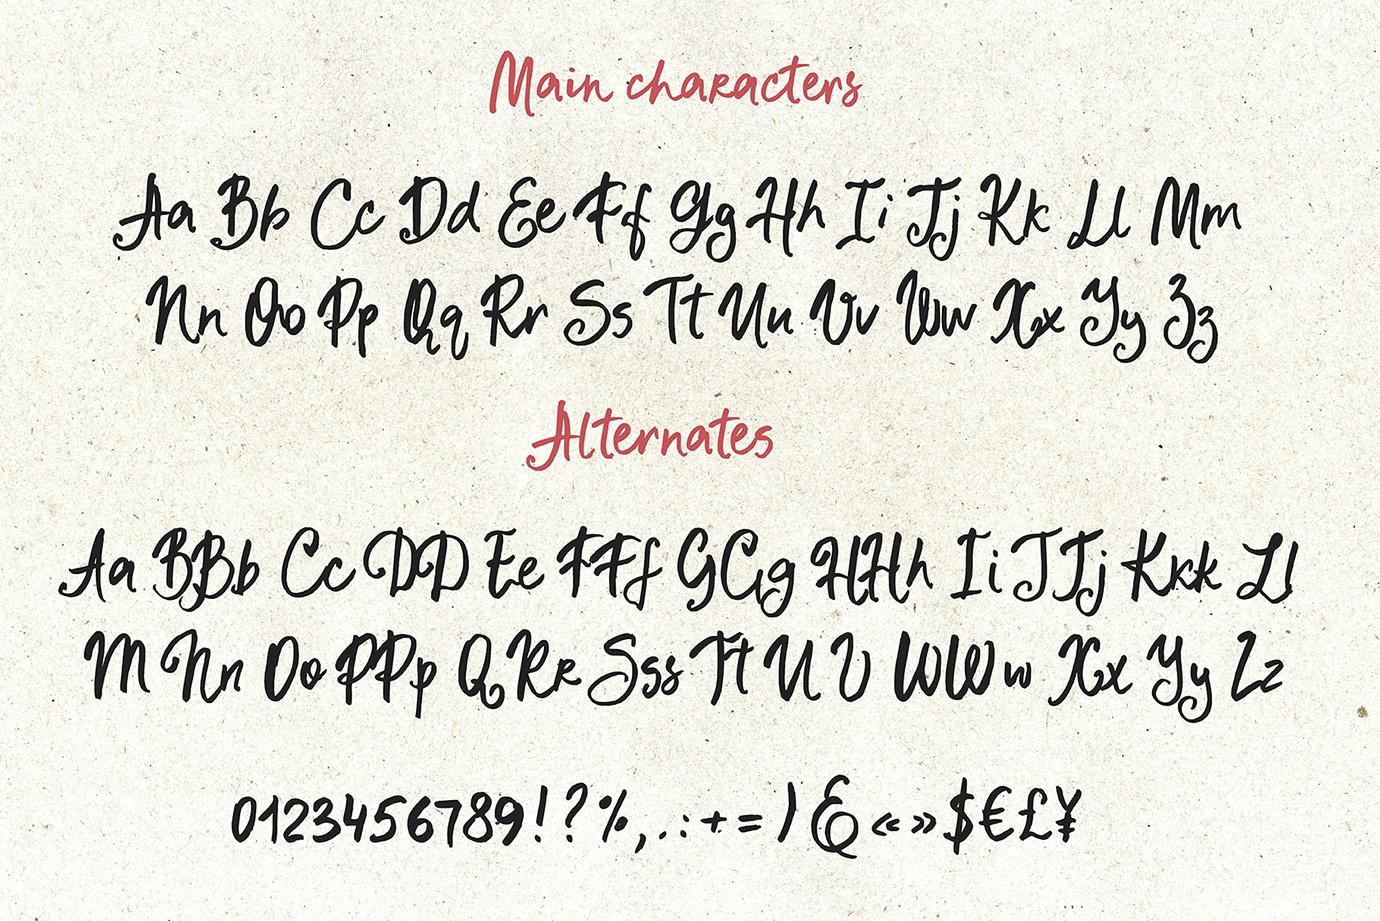 Main characters
Aa Bb Cc Dd Ee Ff Gg Hh Ii Jj Kk Ll Mm
Nn Oo Pp Qq Rr Ss Tt Uu Vv Ww Xx Yy Zz
Alternates
Aa BBb Cc DD Ee FFf GGg HHh Ii JJj Kkk Ll
M Nn Oo PPp Q RRr Sss Tt U V WWw Xx Yy Zz
0123456789!?%,.:+=) & «» $€£¥